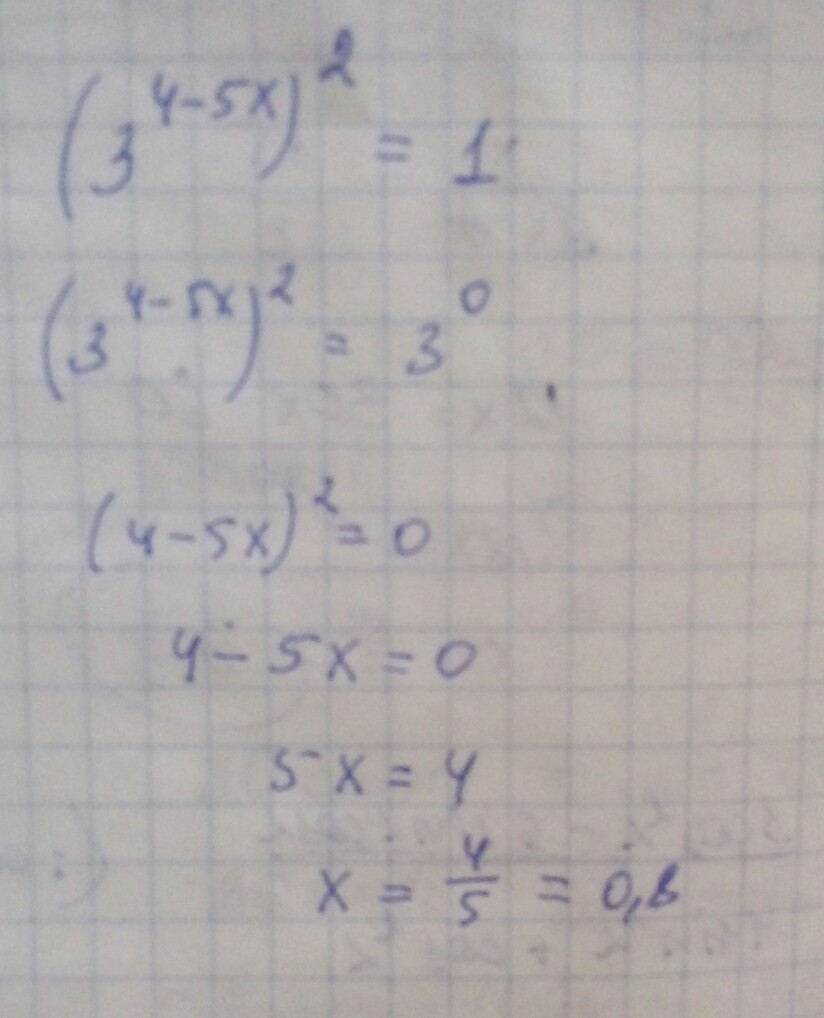 (3^{4-5x})^2 = 1
(3^{4-5x})^2 = 3^0
(4-5x)^2 = 0
4-5x = 0
5x = 4
x = \frac{4}{5} = 0,8